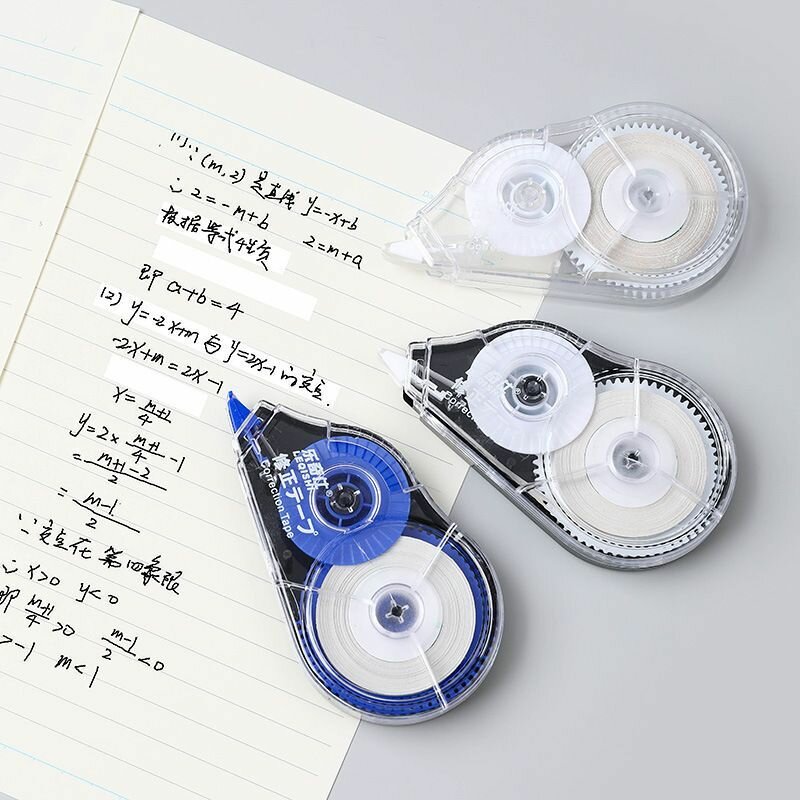 ∵(m, 2) 是直线 y=-x+b
∴ 2=-m+b 2=m+a
根据等式性质
即 a+b=4
(2) y=-2x+m 与 y=2x-1 的交点.
-2x+m=2x-1
x=(m+1)/4
y=2x·(m+1)/4-1
=(m+1-2)/2
=(m-1)/2
∵交点在第四象限
∴ x>0 y<0
即 (m+1)/4>0 (m-1)/2<0
>-1 m<1
Correction Tape
LEQISHI®
修正テープ
Correction Tape